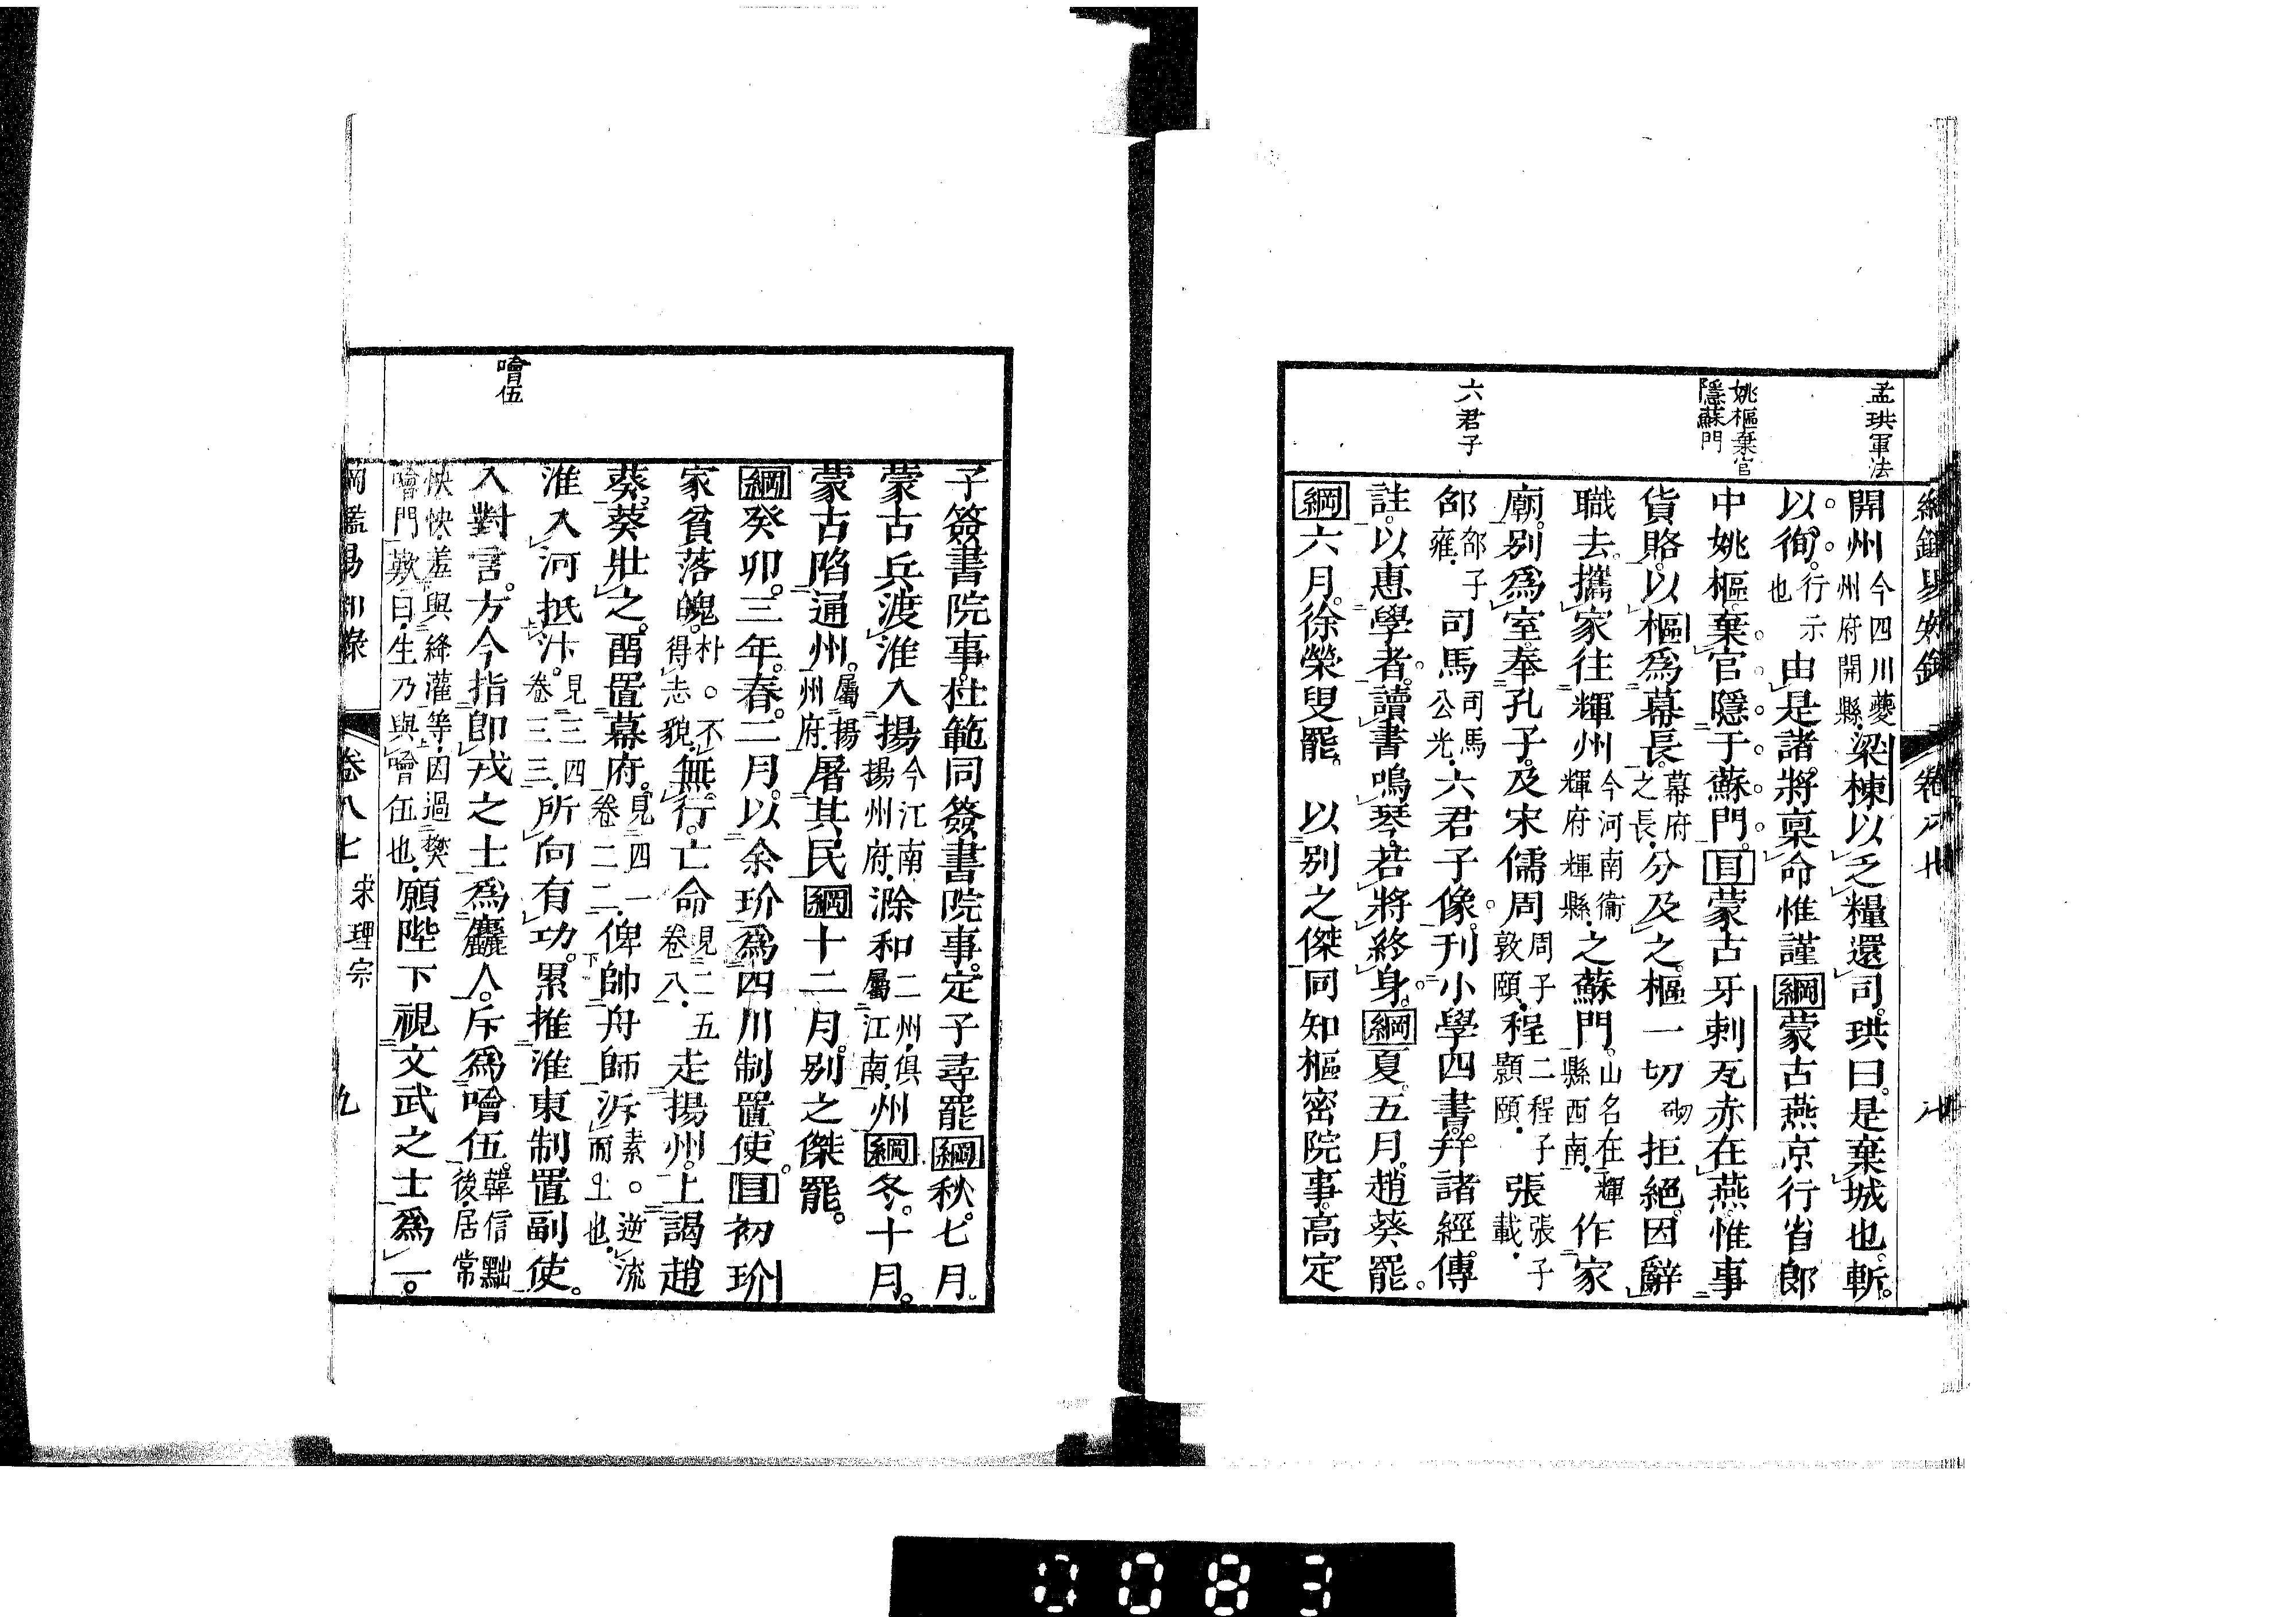 綱鑑易知錄 卷八七 八
孟珙軍法
姚樞棄官
隱蘇門
六君子
開州今四川夔州府開縣梁棟以乏糧還司。珙曰。是棄城也。斬。
以徇。行示也由是諸將稟命惟謹綱蒙古燕京行省郎
中姚樞。棄官隱于蘇門。目蒙古牙剌瓦赤在燕。惟事
貨賂。以樞爲幕長。幕府之長分及之。樞一切砌拒絕。因辭
職去。攜家往輝州今河南衞輝府輝縣之蘇門。山名在輝縣西南作家
廟。別爲室。奉孔子。及宋儒周周子敦頤程二程子顥頤張張子載
邵邵子雍司馬司馬公光六君子像。刊小學四書。幷諸經。傳
註。以惠學者。讀書鳴琴。若將終身。綱夏。五月。趙葵罷。
綱六月。徐榮叟罷。 以別之傑同知樞密院事。高定
子簽書院事。杜範同簽書院事。定子尋罷綱秋。七月。
蒙古兵渡淮入揚今江南揚州府滁和二州俱屬江南州綱冬。十月。
蒙古陷通州。屬揚州府屠其民綱十二月。別之傑罷。
綱癸卯。三年。春。二月。以余玠爲四川制置使。目初玠
家貧落魄。朴。不得志貌無行。亡命見二五卷八走揚州。上謁趙
葵。葵壯之。畱置幕府。見四一卷二二俾帥舟師泝素。逆流而上也
淮入河抵汴。見三四卷三三所向有功。累推淮東制置副使。
入對言。方今指卽戎之士爲麤人。斥爲噲伍。韓信黜後居常
怏怏羞與絳灌等因過樊噲門歎曰生乃與噲伍也願陛下視文武之士爲一。
噲伍
綱鑑易知錄 卷八七 宋理宗 九
0083